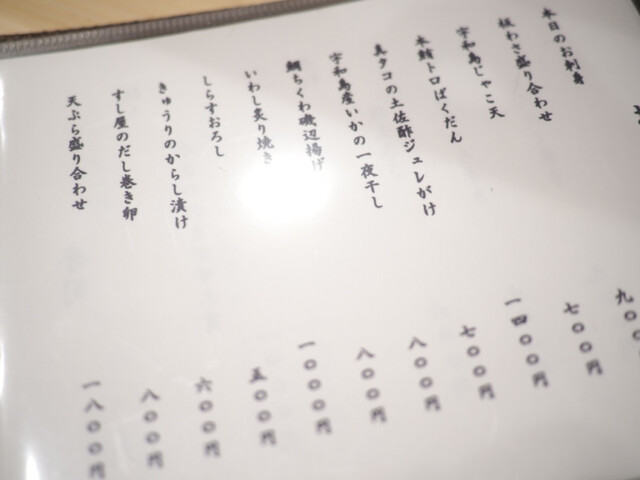 本日のお刺身
板わさ盛り合わせ 九〇〇
宇和島じゃこ天 七〇〇円
本鮪トロばくだん 一四〇〇円
真タコの土佐酢ジュレがけ 七〇〇円
宇和島産いかの一夜干し 八〇〇円
鯛ちくわ磯辺揚げ 八〇〇円
いわし炙り焼き 一〇〇〇円
しらすおろし 五〇〇円
きゅうりのからし漬け 六〇〇円
すし屋のだし巻き卵 八〇〇円
天ぷら盛り合わせ 一八〇〇円